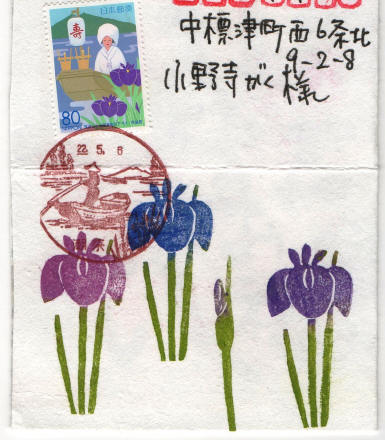 日本郵便
寿
80
中標津町西6条北
9-2-8
小野寺がく様
22.5.6